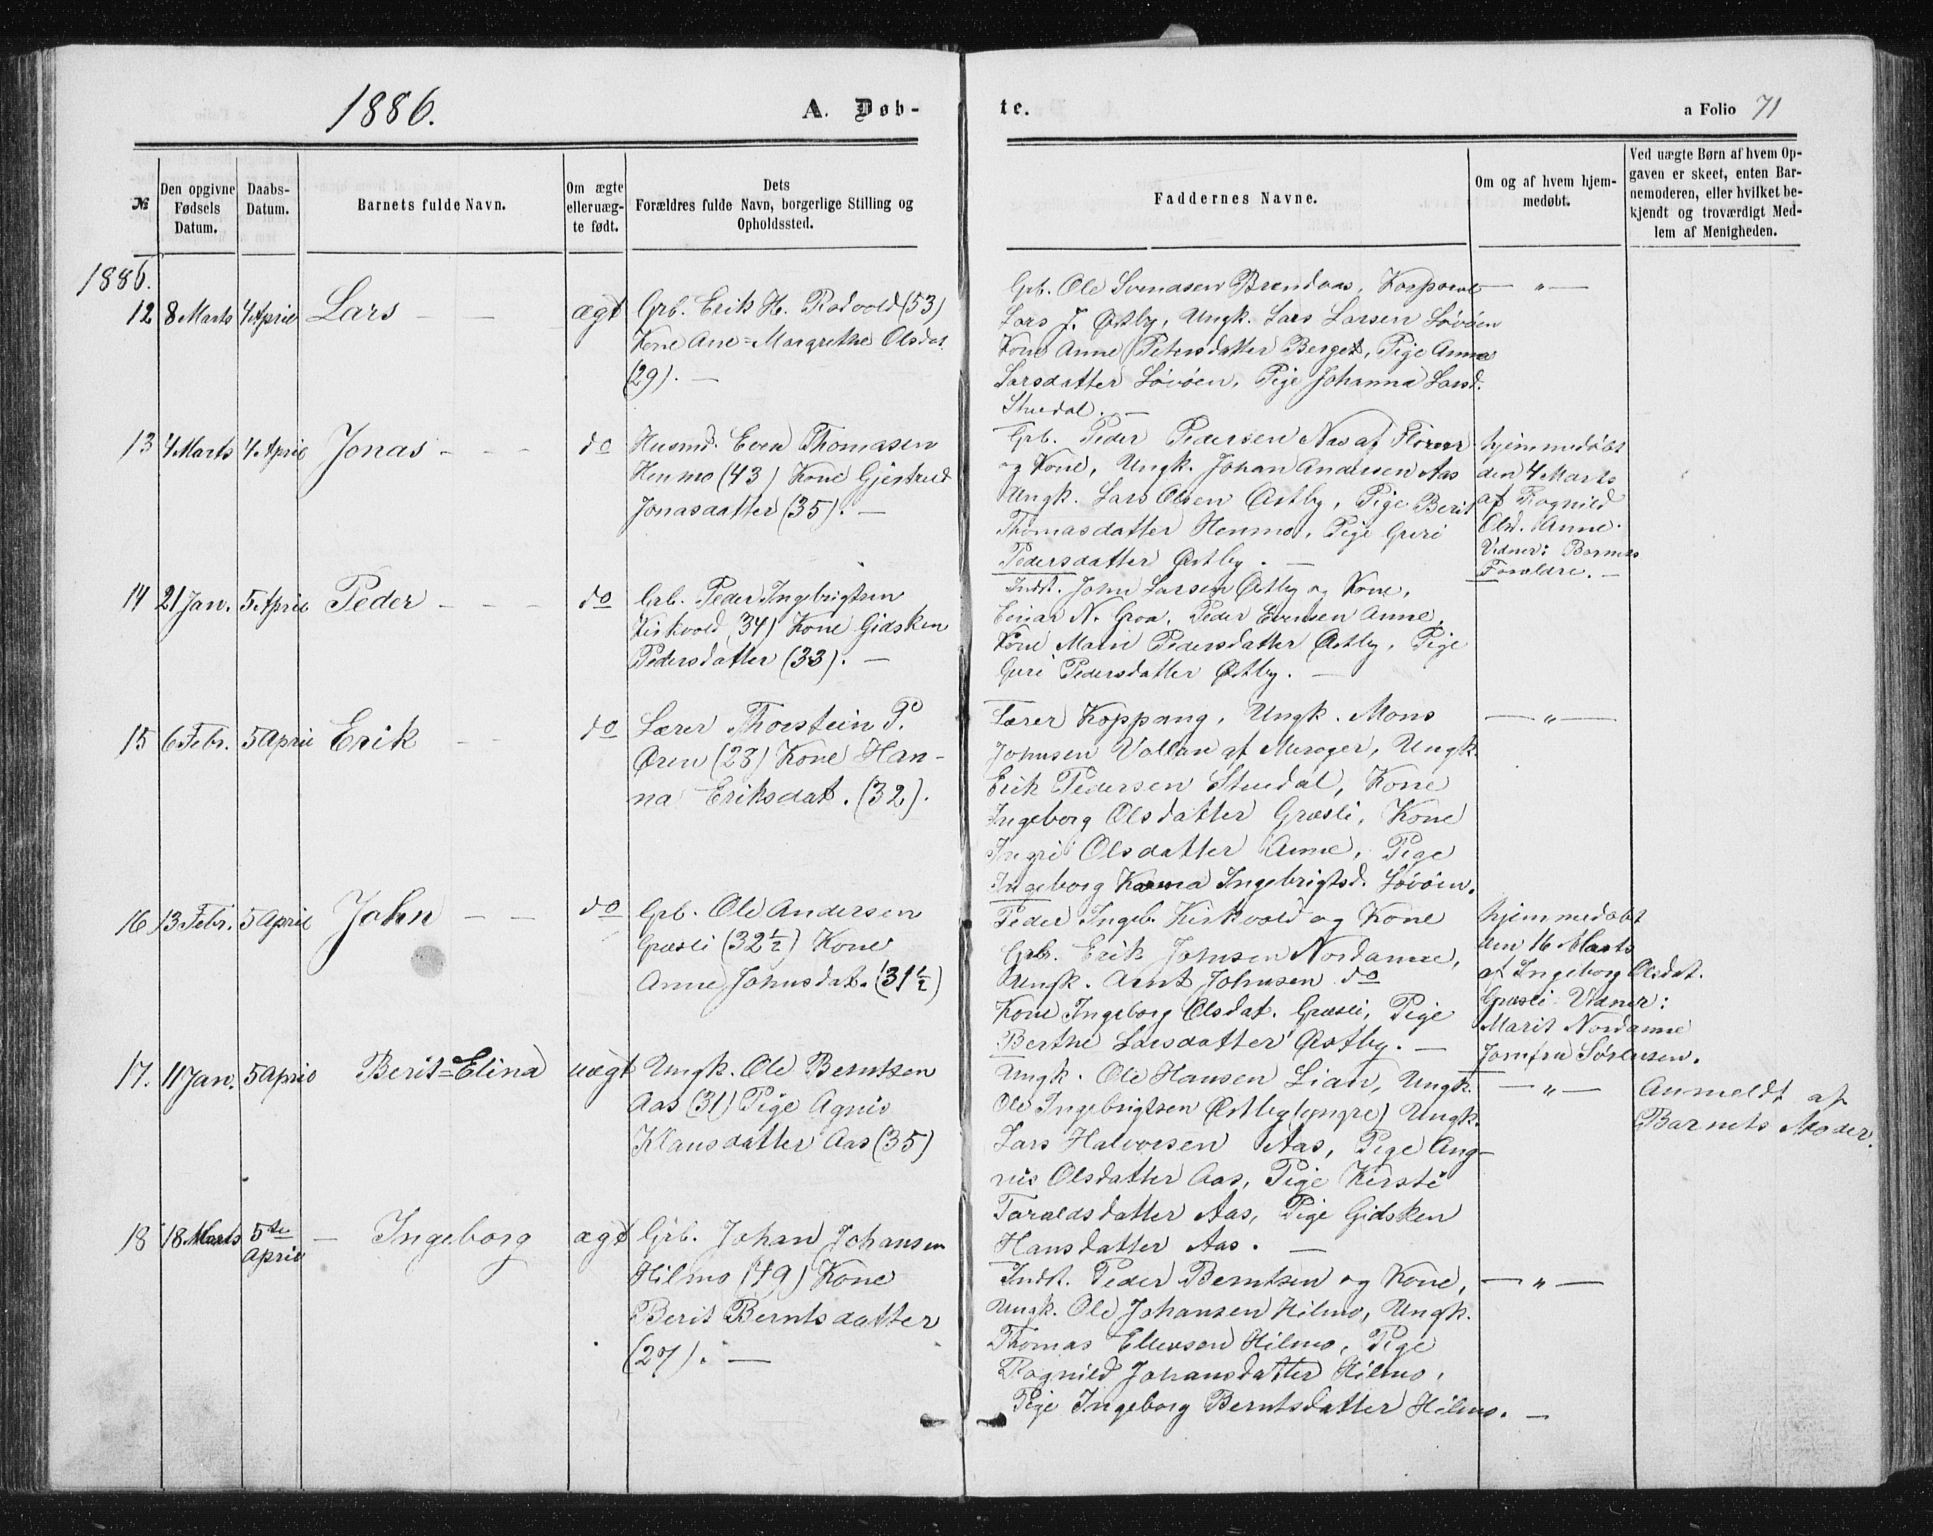 1886.
A. Døb-
te.
a Folio 71
№
Den opgivne
Fødsels
Datum.
Daabs-
Datum.
Barnets fulde Navn.
Om ægte
eller uæg-
te født.
Dets
Forældres fulde Navn, borgerlige Stilling og
Opholdssted.
Faddernes Navne.
Om og af hvem hjem-
medøbt.
Ved uægte Børn af hvem Op-
gaven er skeet, enten Bar-
nemoderen, eller hvilket be-
kjendt og troværdigt Med-
lem af Menigheden.
1886.
12 8 Marts 4 April Lars — — ægt
Grb. Erik H. Rodvold (53)
Kone Ane=Margrethe Olsdat.
(29). —
Grb. Ole Svendsen Brendaas, Korporal
Lars J. Østby, Ungk. Lars Larsen Løvøen
Kone Anne Petersdatter Berget, Pige Anna
Larsdatter Løvøen, Pige Johanna Larsd.
Stuedal. —
— " —
13 4 Marts 4 April Jonas - - - do
Husmd. Even Thomasen
Henmo (43) Kone Gjertrud
Jonasdatter (35). —
Grb. Peder Pedersen Naas af Floren
og Kone, Ungk. Johan Andersen Aas
Ungk. Lars Olsen Østby, Pige Berit
Thomasdatter Henmo, Pige Guri
Pedersdatter Østby. —
hjemmedøbt
den 4 Marts
af Ragnild
Olsd. Aune.
Vidner: Barnets
Forældre. —
14 21 Jan. 5 April Peder - - - do
Grb. Peder Ingebrigtsen
Kirkvold (34) Kone Gidsken
Pedersdatter (33). —
Indst. John Larsen Østby og Kone,
Einar N. Groa, Peder Evensen Aune,
Kone Marit Pedersdatter Østby, Pige
Guri Pedersdatter Østby. —
15 6 Febr. 5 April Erik - - do
Lærer Thorstein P.
Øren (23) Kone Han-
na Eriksdat. (32).
Lærer Koppang, Ungk. Mons
Johnsen Vollan af Merager, Ungk.
Erik Pedersen Stuedal, Kone
Ingeborg Olsdatter Græsli, Kone
Ingri Olsdatter Aune, Pige
Ingeborg Karna Ingebrigtsd. Løvøen.
— " —
16 13 Febr. 5 April John — — do
Grb. Ole Andersen
Græsli (32½) Kone
Anne Johnsdat. (31½)
Peder Ingeb. Kirkvold og Kone
Grb. Erik Johnsen Nordaune,
Ungk. Arnt Johnsen do
Kone Ingeborg Olsdat. Græsli, Pige
Berthe Larsdatter Østby. —
hjemmedøbt
den 16 Marts
af Ingeborg Olsdat.
Græsli. Vidner:
Marit Nordaune
Jomfru Sørensen.
17. 11 Jan. 5 April Berit=Elina uægt
Ungk. Ole Berntsen
Aas (31) Pige Agnis
Klausdatter Aas (35)
Ungk. Ole Hansen Lian, Ungk.
Ole Ingebrigtsen Østby (yngre) Ungk.
Lars Halvorsen Aas, Pige Ang-
nis Olsdatter Aas, Pige Kirsti
Taraldsdatter Aas, Pige Gidsken
Hansdatter Aas. —
— " —
Anmeldt af
Barnets Moder.
18 18 Marts 5te April — Ingeborg ægt
Grb. Johan Johansen
Hilmo (49) Kone
Berit Berntsdatter
(27). —
Indst. Peder Berntsen og Kone,
Ungk. Ole Johansen Hilmo, Ungk.
Thomas Ellevsen Hilmo, Pige
Ragnild Johansdatter Hilmo,
Pige Ingeborg Berntsdatter Hilmo. —
— " —